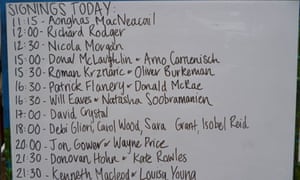 SIGNINGS TODAY:
11:15 - Aonghas MacNeacail
12:00 - Richard Rodger
12:30 - Nicola Morgan
15:00 - Donal McLaughlin & Arno Camenisch
15:30 - Roman Krznaric & Oliver Burkeman
16:30 - Patrick Flanery & Donald McRae
16:30 - Will Eaves & Natasha Soobramanien
17:00 - David Crystal
18:00 - Debi Gliori, Carol Wood, Sara Grant, Isobel Reid
20:00 - Jon Gower & Wayne Price
21:30 - Donovan Hohn & Kate Rawles
21:30 - Kenneth Macleod & Louisa Young